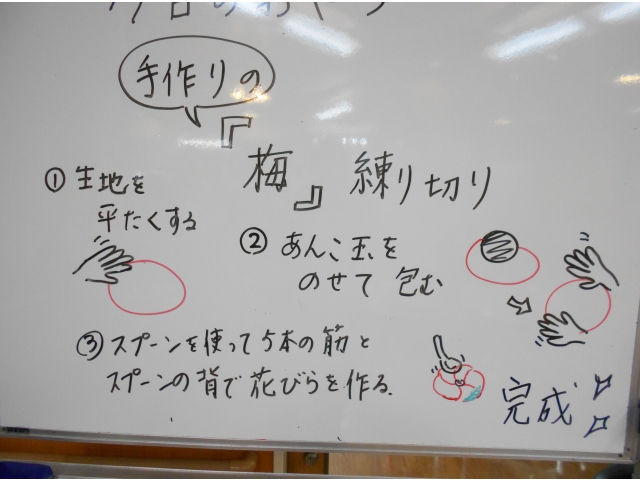 今日のおやつ
手作りの
『梅』練り切り
① 生地を
平たくする
② あんこ玉を
のせて 包む
③ スプーンを使って5本の筋と
スプーンの背で花びらを作る.
完成